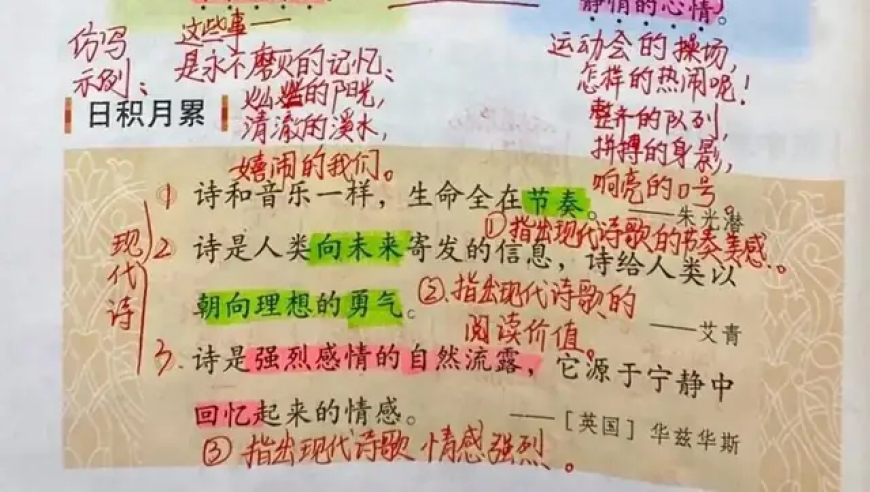 静悄的心情。
仿写
示例：
这些事——
是永不磨灭的记忆：
灿烂的阳光，
清澈的溪水，
嬉闹的我们。
运动会的操场，
怎样的热闹呢！
整齐的队列，
拼搏的身影，
响亮的口号。
日积月累
现代诗
1 诗和音乐一样，生命全在节奏。
——朱光潜
①指出现代诗歌的节奏美感。
2 诗是人类向未来寄发的信息，诗给人类以
朝向理想的勇气。
②指出现代诗歌的
阅读价值。
——艾青
3. 诗是强烈感情的自然流露，它源于宁静中
回忆起来的情感。
——［英国］华兹华斯
③指出现代诗歌 情感强烈。